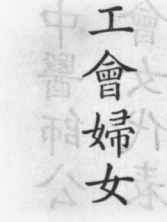 工會婦女